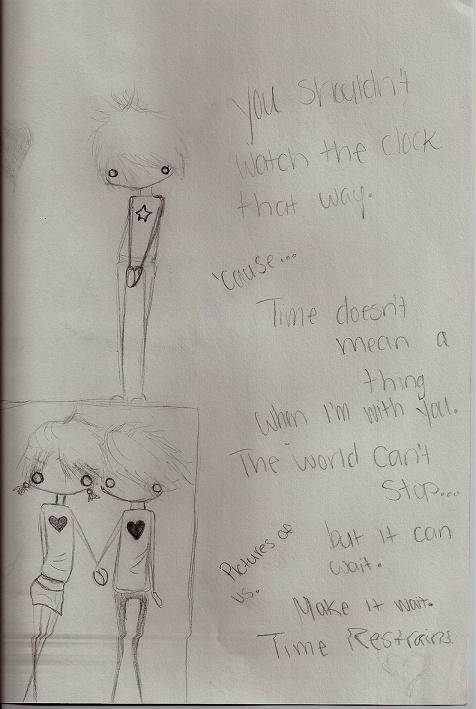 You shouldn't
watch the clock
that way.
'cause...
Time doesn't
mean a
thing
when I'm with you.
The world can't
stop...
but it can
wait.
Pictures of
us.
Make it wait.
Time Restrains.